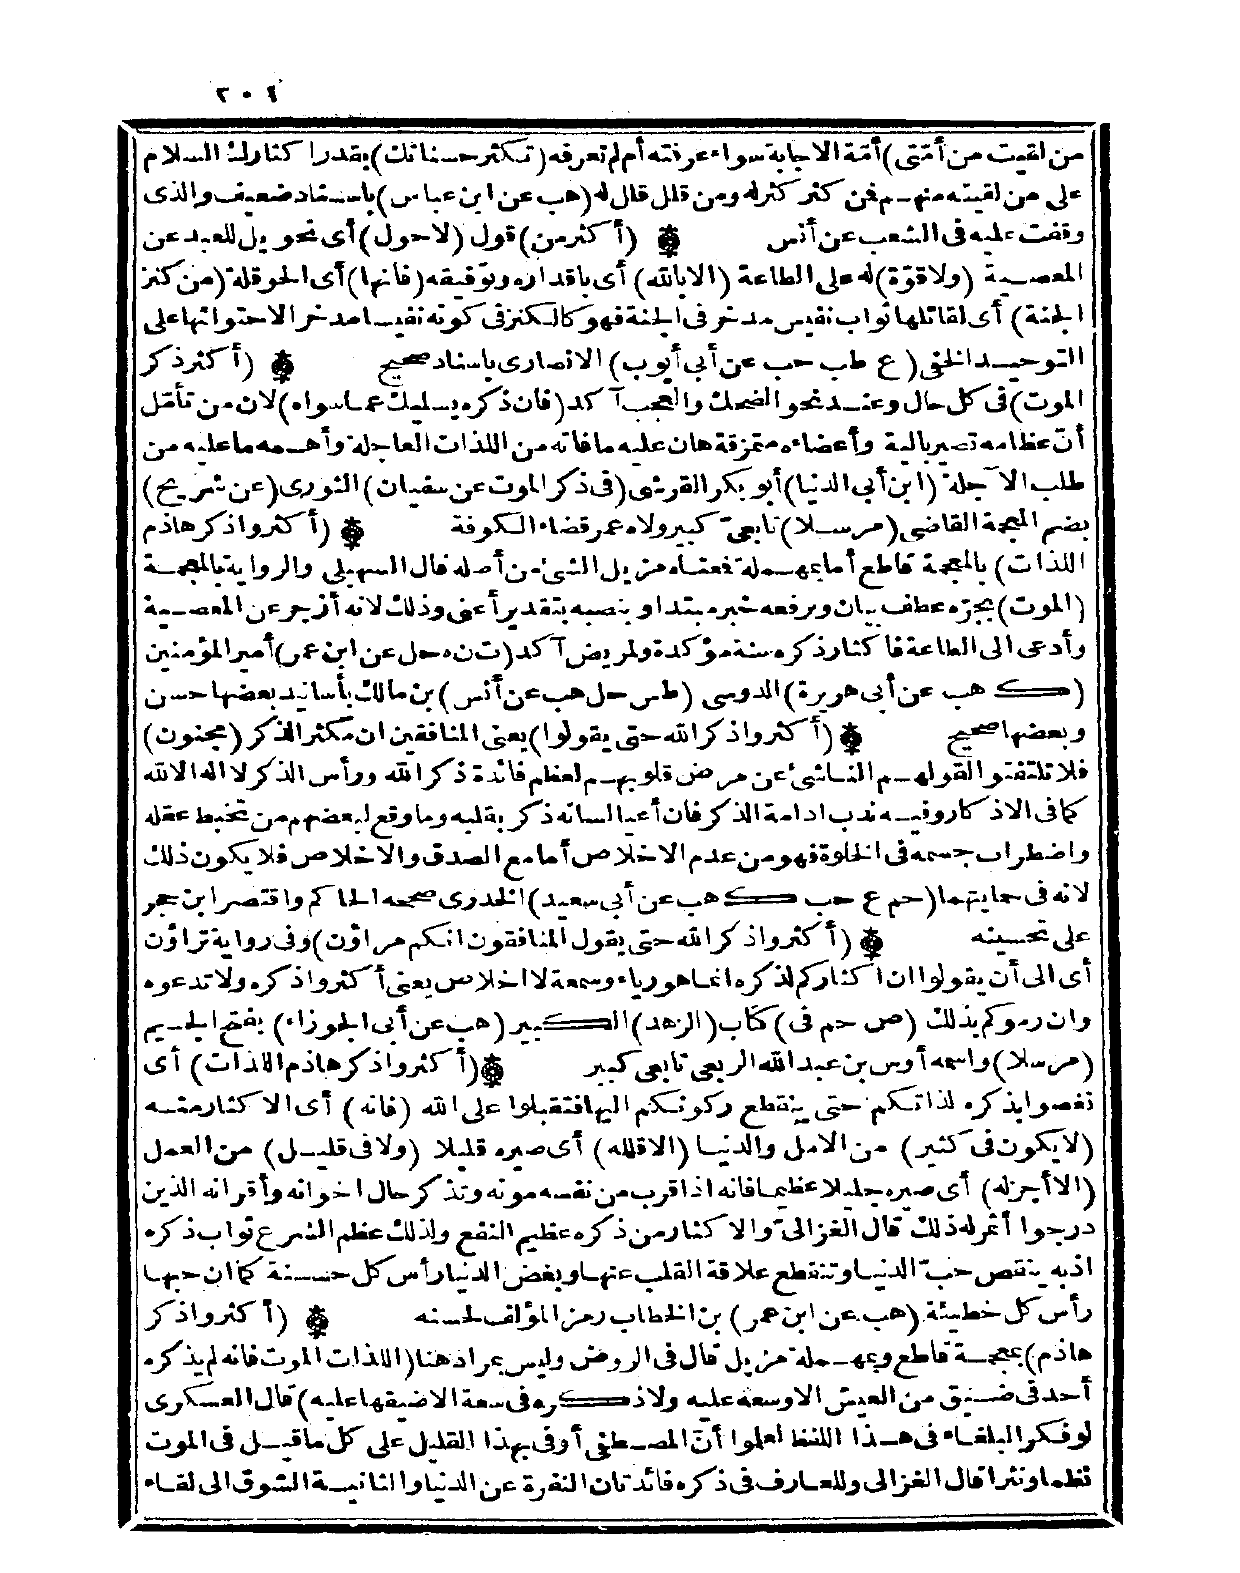 ٢٠٤
من لقيت من أمتى) أمة الاجابة سواء عرفته أم لم تعرفه (تكثر حسناتك) بقدر اكثارك السلام
على من لقيته منهم فمن كثر كثر له ومن قلل قلل له (هب عن ابن عباس) باسناد ضعيف والذى
وقفت عليه فى الشعب عن أنس (أكثر من) قول (لاحول) أى تحويل للعبد عن
المعصية (ولا قوّة) له على الطاعة (الا بالله) أى باقداره وتوفيقه (فانها) أى الحوقلة (من كنز
الجنة) أى لقائلها ثواب نفيس مدخر فى الجنة فهو كالكنز فى كونه نفيسا مدخرا لاحتوائها على
التوحيد الخفى (ع طب حب عن أبى أيوب) الانصارى باسناد صحيح (أكثر ذكر
الموت) فى كل حال وعند نحو الضحك والعجب آكد (فان ذكره يسليك عما سواه) لان من تأمّل
أنّ عظامه تصير بالية وأعضاءه متمزقة هان عليه مافاته من اللذات العاجلة وأهمه ما عليه من
طلب الآجلة (ابن أبى الدنيا) أبو بكر القرشى (فى ذكر الموت عن سفيان) الثورى (عن شريح)
بضم المعجمة القاضى (مرسلا) تابعىّ كبير ولاه عمر قضاء الكوفة (أكثروا ذكر هاذم
اللذات) بالمعجمة قاطع أما بمهملة فمعناه مزيل الشئ من أصله قال السهيلى والرواية بالمعجمة
(الموت) بجرّه عطف بيان وبرفعه خبر مبتدا وبنصبه بتقدير أعنى وذلك لانه أزجر عن المعصية
وأدعى الى الطاعة فاكثار ذكره سنة مؤكدة ولمريض آكد (ت ن ه حل عن ابن عمر) أمير المؤمنين
(ك هب عن أبى هريرة) الدوسى (طس حل هب عن أنس) بن مالك بأسانيد بعضها حسن
وبعضها صحيح (أكثروا ذكر الله حتى يقولوا) يعنى المنافقين ان مكثر الذكر (مجنون)
فلا تلتفتوا لقولهم الناشئ عن مرض قلوبهم لعظم فائدة ذكر الله ورأس الذكر لا اله الا الله
كما فى الاذكار وفيه ندب ادامة الذكر فان أعيا لسانه ذكر بقلبه وما وقع لبعضهم من تخبط عقله
واضطراب جسمه فى الخلوة فهو من عدم الاخلاص أما مع الصدق والاخلاص فلا يكون ذلك
لانه فى حمايتهما (حم ع حب ك هب عن أبى سعيد) الخدرى صححه الحاكم واقتصر ابن حجر
على تحسينه (أكثروا ذكر الله حتى يقول المنافقون انكم مراؤن) وفى رواية تراؤن
أى الى أن يقولوا ان اكثاركم لذكره انما هو رياء وسمعة لا اخلاص يعنى أكثروا ذكره ولا تدعوه
وان رموكم بذلك (ص حم فى) كتاب (الزهد) الكبير (هب عن أبى الجوزاء) بفتح الجيم
(مرسلا) واسمه أوس بن عبد الله الربعى تابعى كبير (أكثروا ذكر هاذم اللذات) أى
نغصوا بذكره لذاتكم حتى ينقطع ركونكم اليها فتقبلوا على الله (فانه) أى الاكثار منه
(لا يكون فى كثير) من الامل والدنيا (الا قلله) أى صيره قليلا (ولا فى قليل) من العمل
(الا أجزله) أى صيره جليلا عظيما فانه اذا قرب من نفسه موته وتذكر حال اخوانه وأقرانه الذين
درجوا أثمر له ذلك قال الغزالىّ والاكثار من ذكره عظيم النفع ولذلك عظم الشرع ثواب ذكره
اذ به ينقص حبّ الدنيا وتنقطع علاقة القلب عنها وبغض الدنيا رأس كل حسنة كما ان حبها
رأس كل خطيئة (هب عن ابن عمر) بن الخطاب رمز المؤلف لحسنه (أكثروا ذكر
هاذم) بمعجمة قاطع وبمهملة مزيل قال فى الروض وليس بمراد هنا (اللذات الموت فانه لم يذكره
أحد فى ضيق من العيش الا وسعه عليه ولا ذكره فى سعة الا ضيقها عليه) قال العسكرى
لو فكر البلغاء فى هذا اللفظ لعلموا أنّ المصطفى أوفى بهذا القليل على كل ما قيل فى الموت
نظما ونثرا قال الغزالى وللعارف فى ذكره فائدتان النفرة عن الدنيا والثانية الشوق الى لقاء